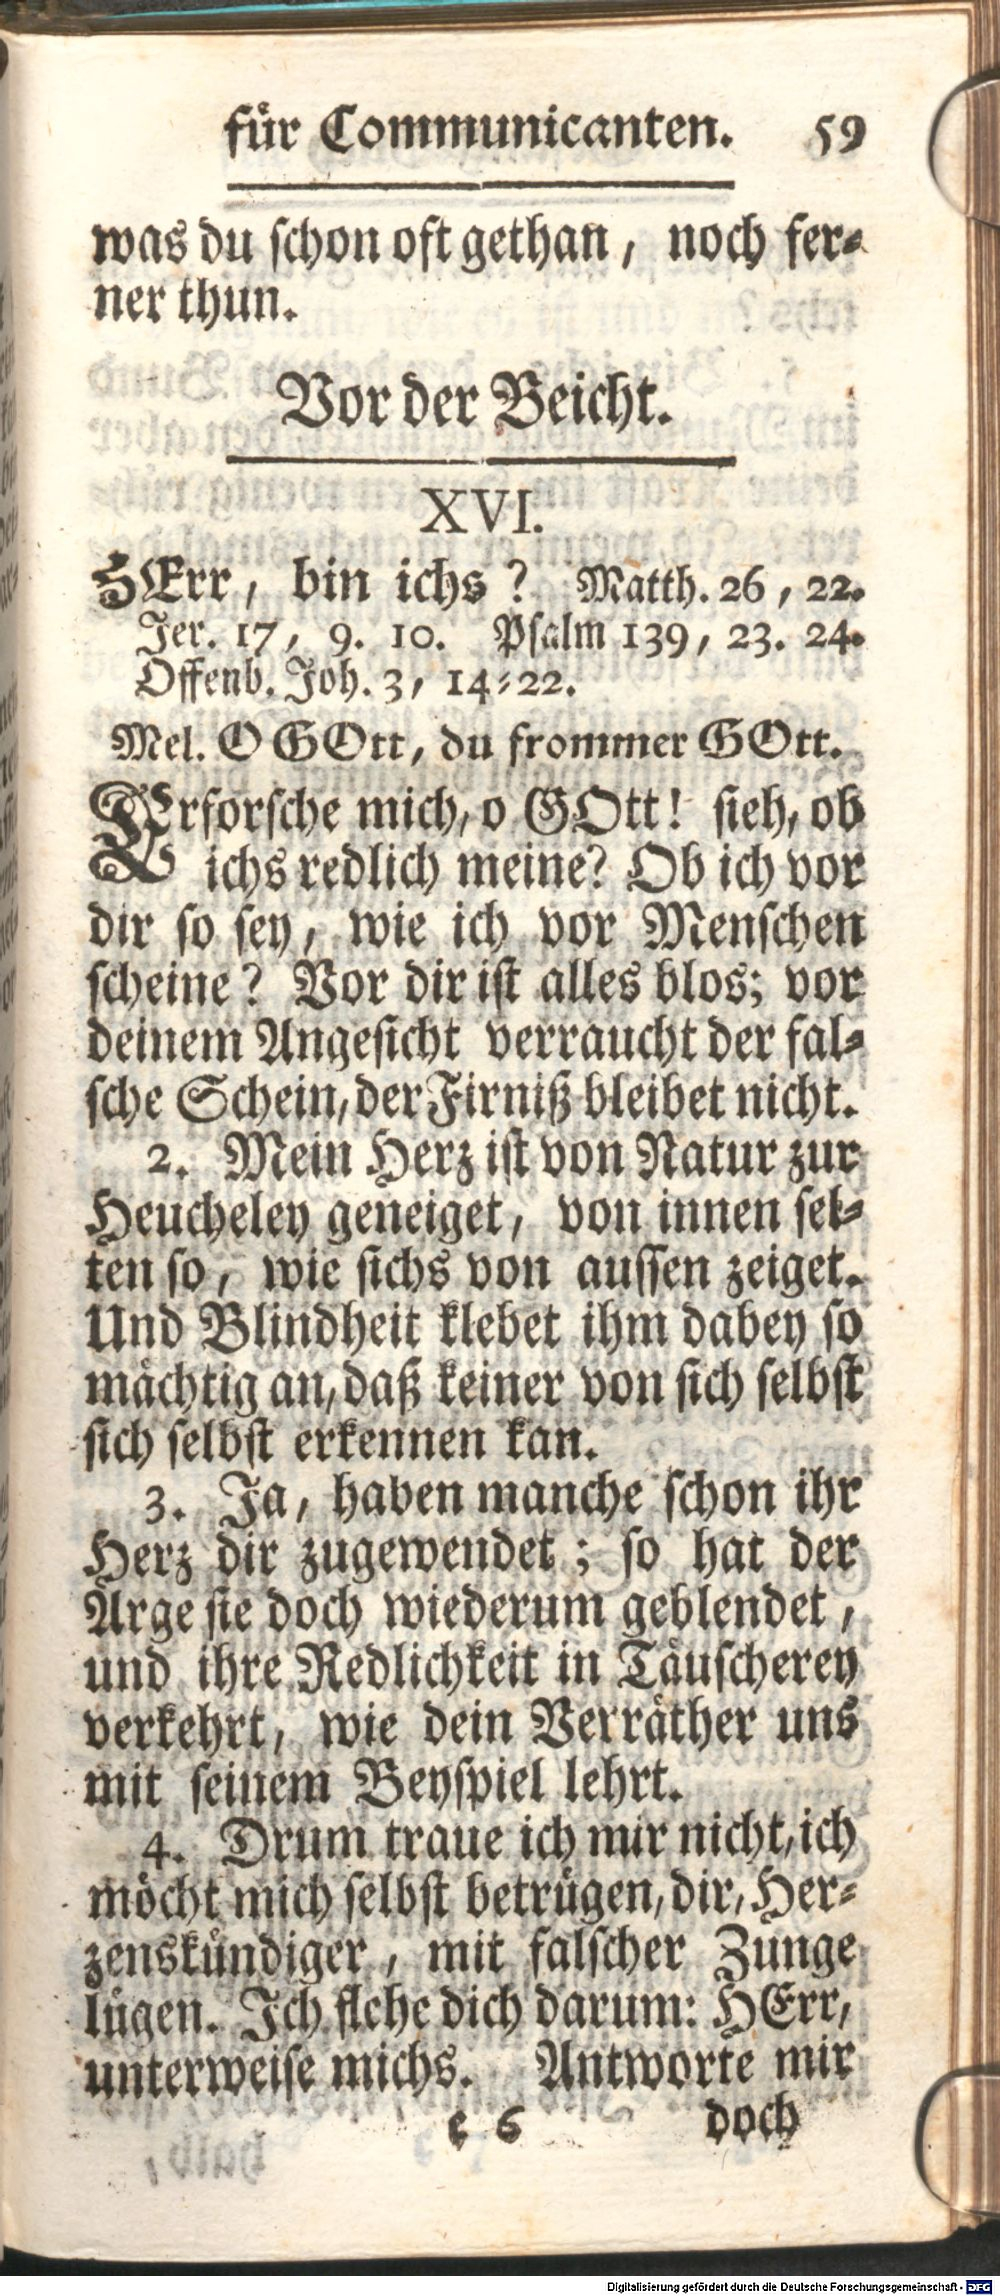 für Communicanten. 59
was du schon oft gethan, noch fer-
ner thun.
Vor der Beicht.
XVI.
HErr, bin ichs? Matth. 26, 22.
Jer. 17, 9. 10. Psalm 139, 23. 24.
Offenb. Joh. 3, 14-22.
Mel. O GOtt, du frommer GOtt.
Erforsche mich, o GOtt! sieh, ob
ichs redlich meine? Ob ich vor
dir so sey, wie ich vor Menschen
scheine? Vor dir ist alles blos; vor
deinem Angesicht verraucht der fal-
sche Schein, der Firniß bleibet nicht.
2. Mein Herz ist von Natur zur
Heucheley geneiget, von innen sel-
ten so, wie sichs von aussen zeiget.
Und Blindheit klebet ihm dabey so
mächtig an, daß keiner von sich selbst
sich selbst erkennen kan.
3. Ja, haben manche schon ihr
Herz dir zugewendet; so hat der
Arge sie doch wiederum geblendet,
und ihre Redlichkeit in Täuscherey
verkehrt, wie dein Verräther uns
mit seinem Beyspiel lehrt.
4. Drum traue ich mir nicht, ich
möcht mich selbst betrügen, dir, Her-
zenskündiger, mit falscher Zunge
lügen. Ich flehe dich darum: HErr,
unterweise michs. Antworte mir
c 6 doch
Digitalisierung gefördert durch die Deutsche Forschungsgemeinschaft - DFG